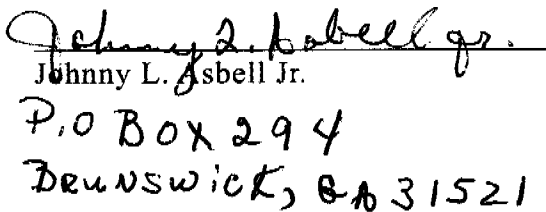 Johnny L. Asbell Jr.
Johnny L. Asbell Jr.
P.O BOX 294
BRUNSWICK, GA 31521